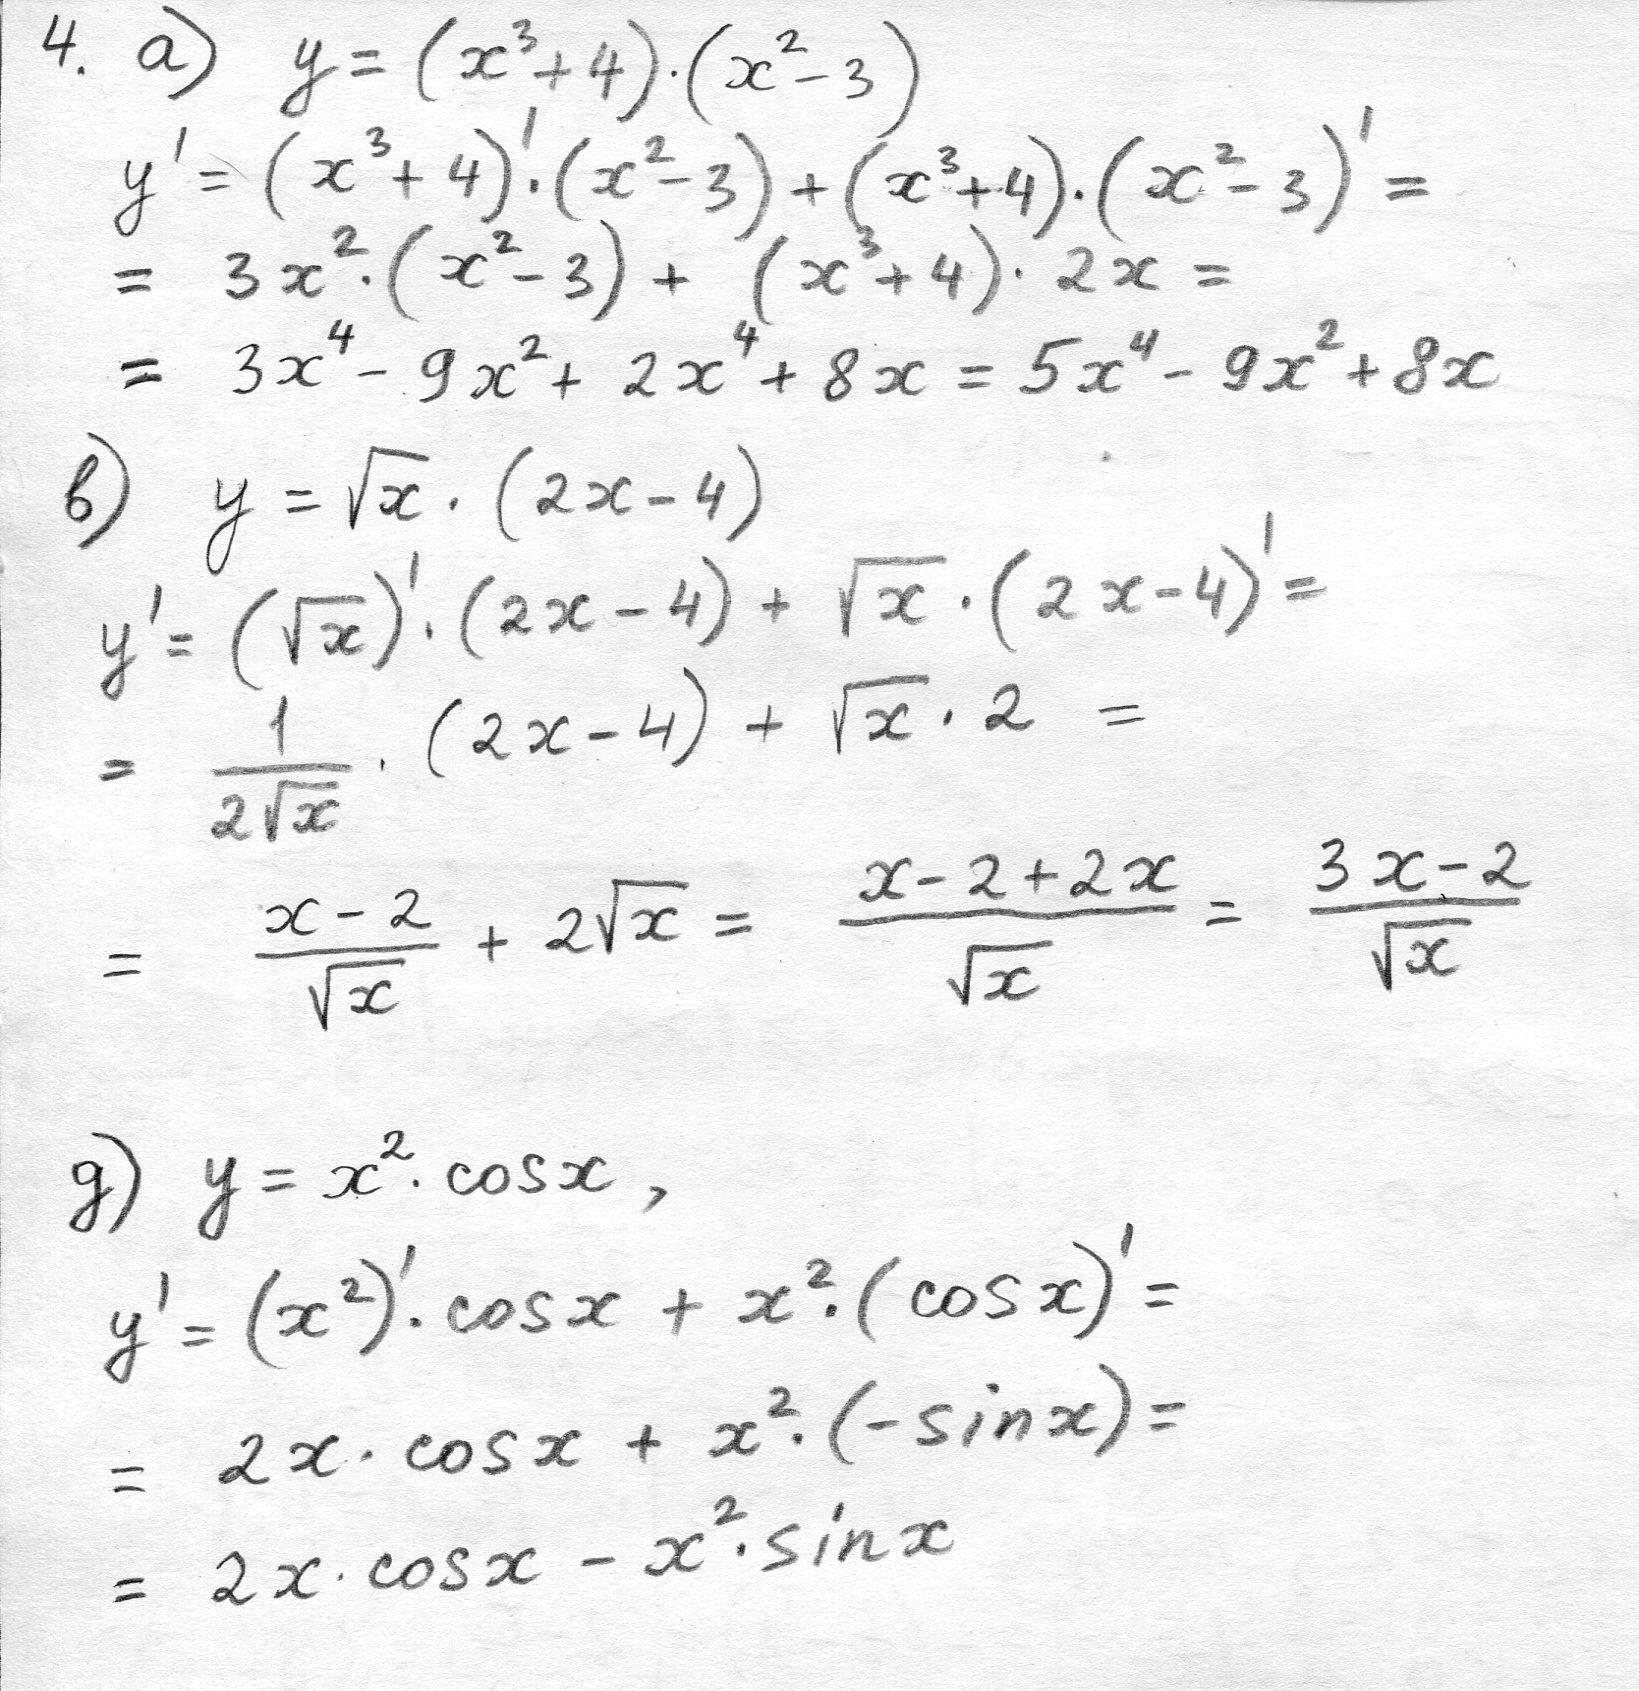 4. а) y = (x³+4)·(x²-3)
y' = (x³+4)'·(x²-3)+(x³+4)·(x²-3)' =
= 3x²·(x²-3)+ (x³+4)·2x =
= 3x⁴-9x²+2x⁴+8x = 5x⁴-9x²+8x
в) y = √x·(2x-4)
y' = (√x)'·(2x-4)+√x·(2x-4)' =
= 1/(2√x)·(2x-4)+√x·2 =
= (x-2)/√x + 2√x = (x-2+2x)/√x = (3x-2)/√x
д) y = x²·cosx,
y' = (x²)'·cosx + x²·(cosx)' =
= 2x·cosx + x²·(-sinx) =
= 2x·cosx - x²·sinx